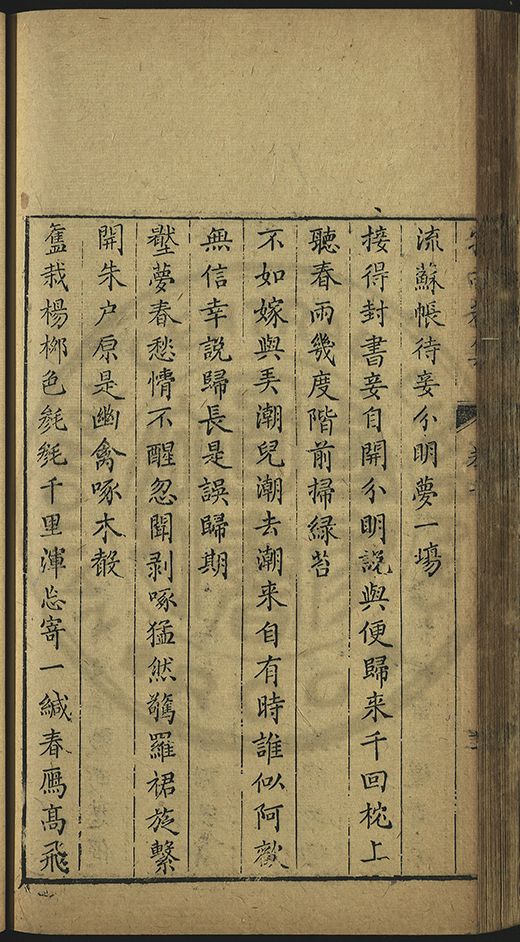 流蘇帳待妾分明夢一塲
接得封書妾自開分明說與便歸来千回枕上
聽春雨幾度階前掃緑苔
不如嫁與弄潮兒潮去潮来自有時誰似阿歡
無信幸說歸長是誤歸期
壂夢春愁懵不醒忽聞剥啄猛然驚羅裙旋繫
開朱户原是幽禽啄木聲
舊栽楊栁色毿毿千里渾忘寄一緘春鴈髙飛